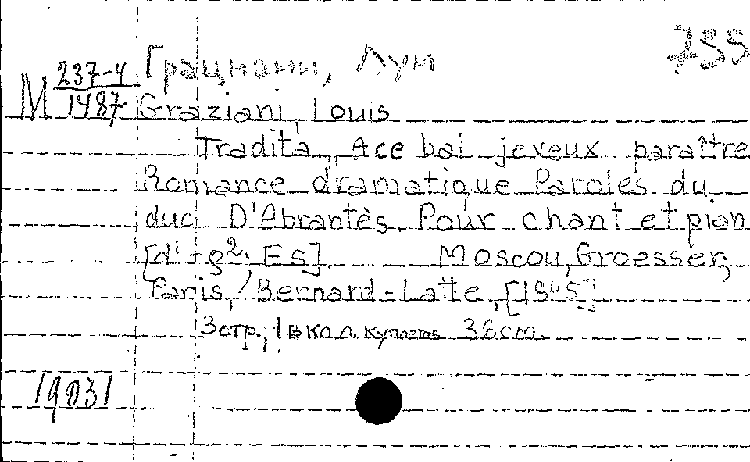 755
Грациани, Луи
М 237-4
1487
Graziani, Louis
Tradita, A ce bal je veux paraître
Romance dramatique Paroles du
duc D'Abrantès. Pour chant et pian
[d¹ - g², Es]. Moscou, Groesser,
Paris, Bernard-Latte, [1845]
3 стр., 1 вкл л. куплетs 36 cm.
19031